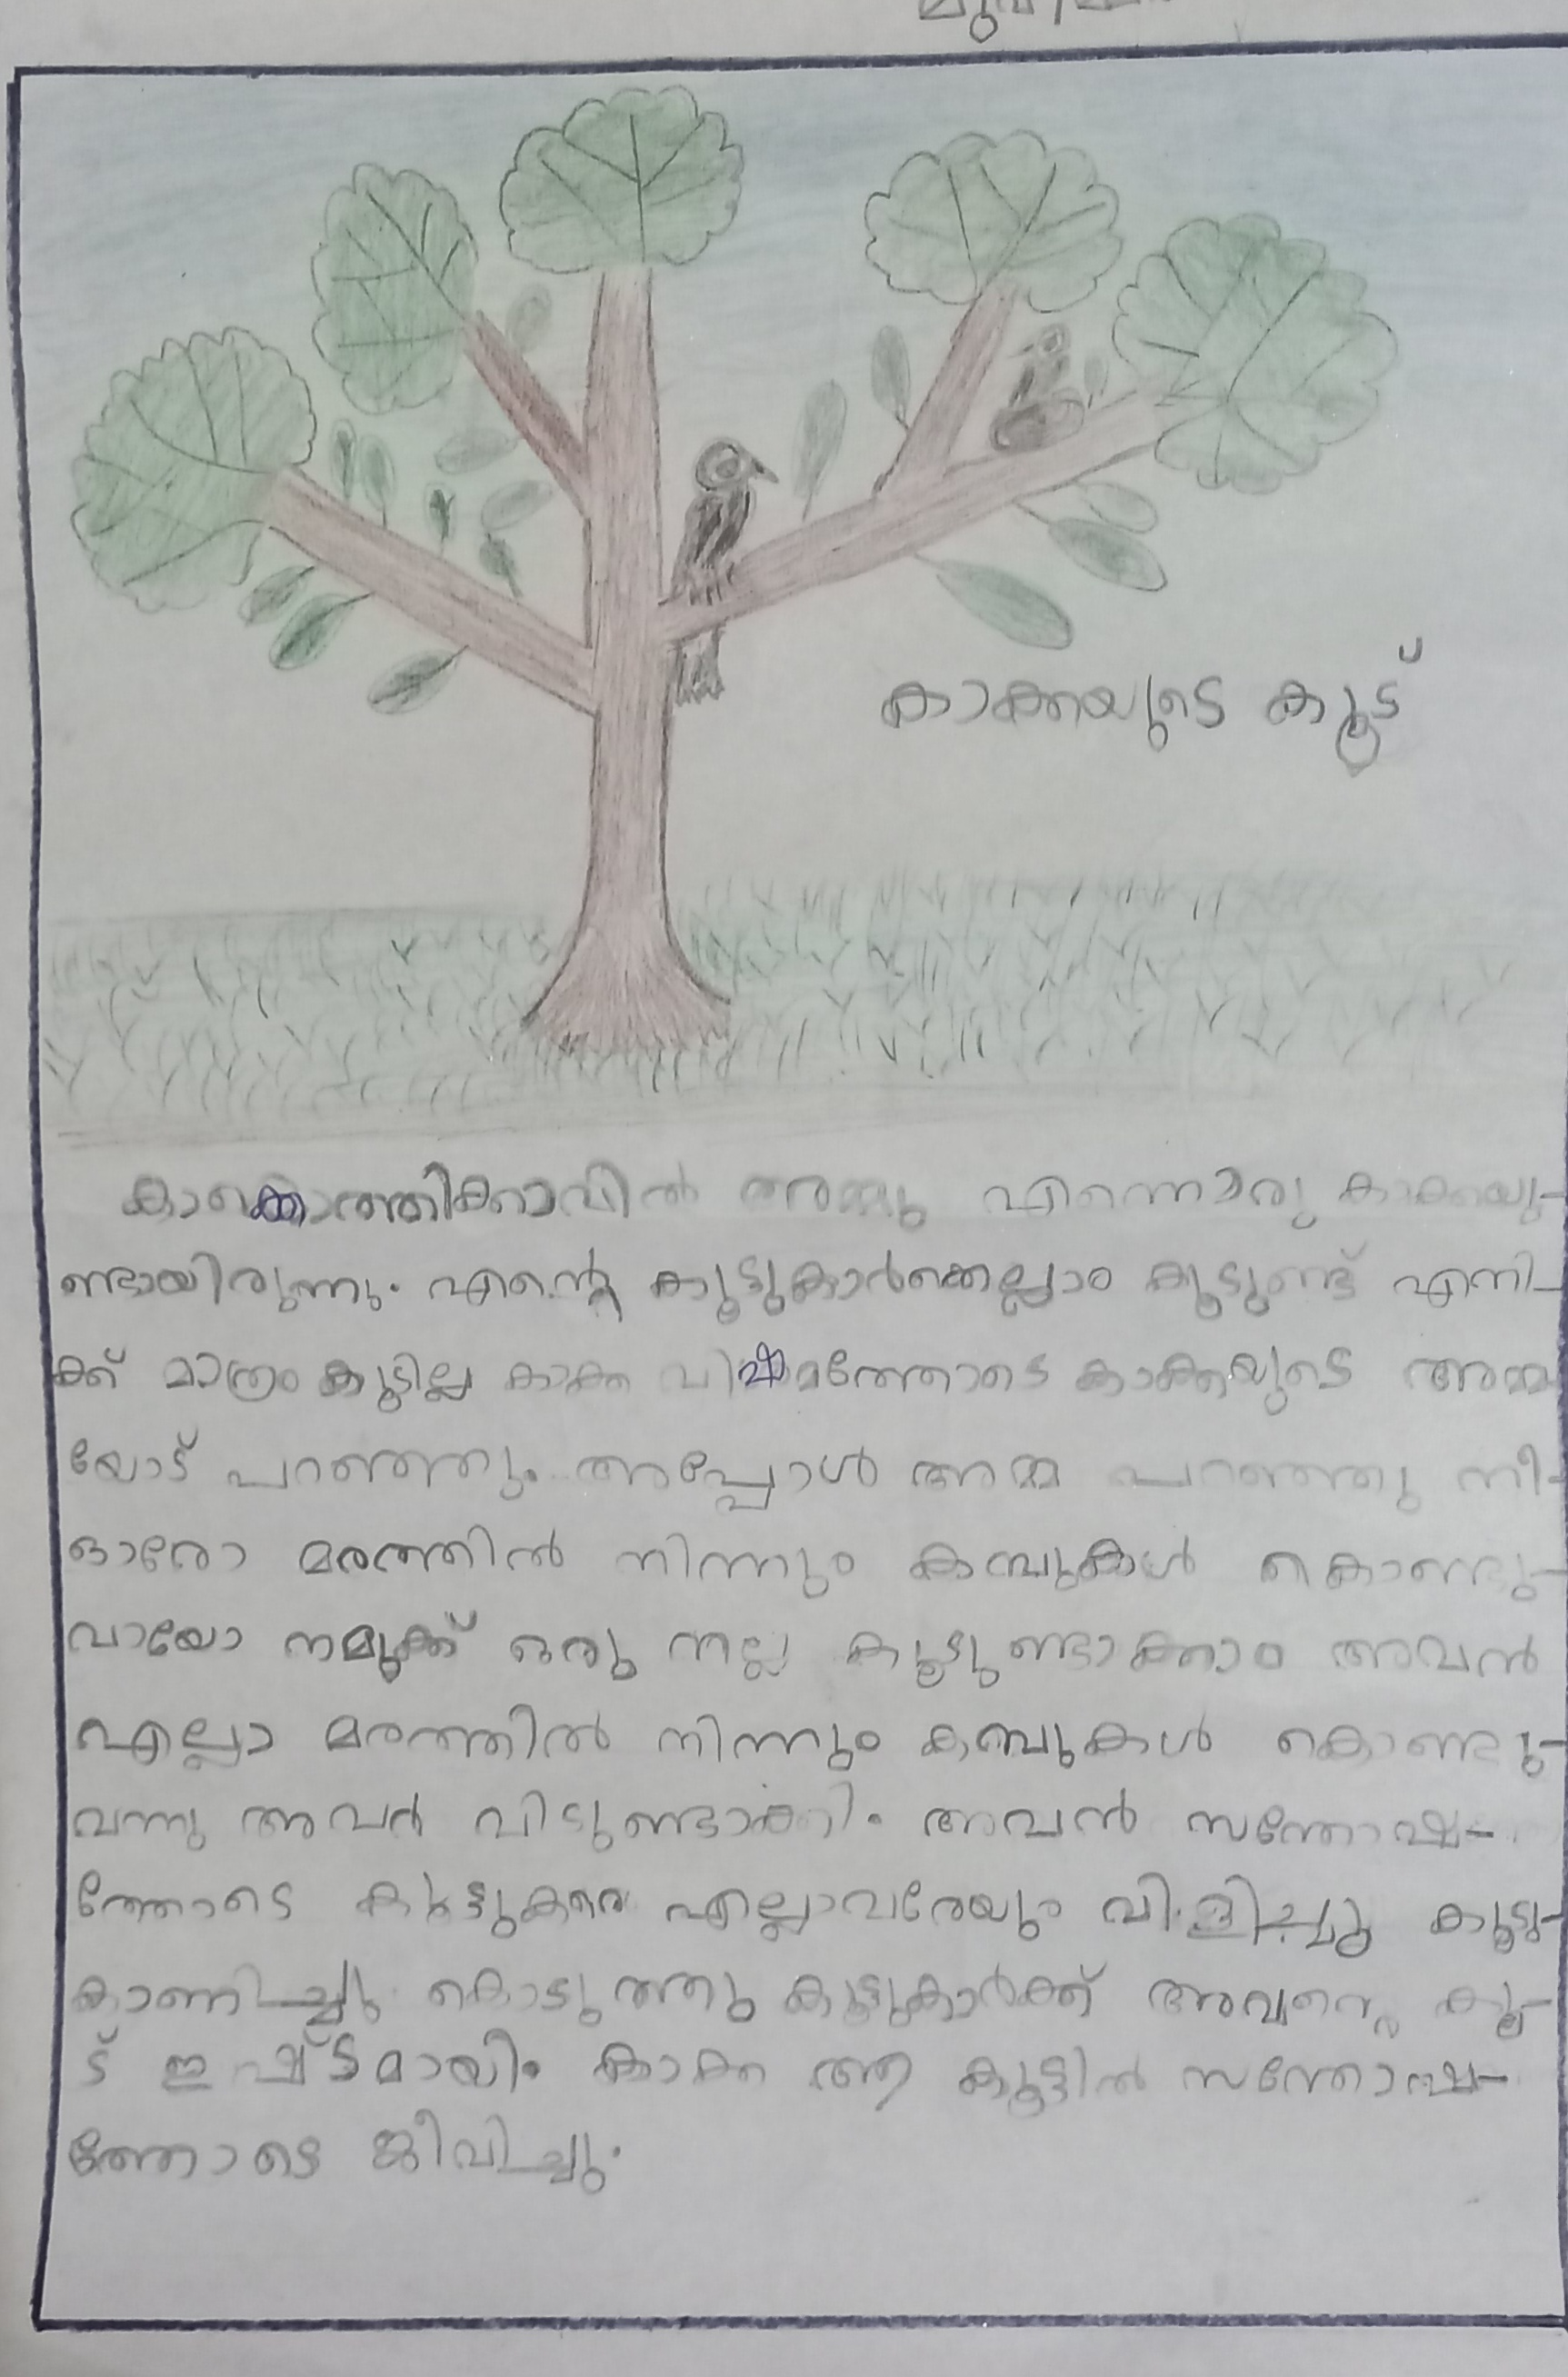 കാക്കയുടെ കൂട്
കാക്കൊത്തിക്കാവിൽ അമ്മു എന്നൊരു കാക്കയു-
ണ്ടായിരുന്നു. എന്റെ കൂട്ടുകാർക്കെല്ലാം കൂടുണ്ട് എനി-
ക്ക് മാത്രം കൂടില്ല കാക്ക വിഷമത്തോടെ കാക്കയുടെ അമ്മ
യോട് പറഞ്ഞു. അപ്പോൾ അമ്മ പറഞ്ഞു നീ-
ഓരോ മരത്തിൽ നിന്നും കമ്പുകൾ കൊണ്ടു-
വായോ നമുക്ക് ഒരു നല്ല കൂടുണ്ടാക്കാം അവൻ
എല്ലാ മരത്തിൽ നിന്നും കമ്പുകൾ കൊണ്ടു-
വന്നു അവർ വിടുണ്ടാക്കി. അവൻ സന്തോഷ-
ത്തോടെ എല്ലാവരേയും വിളിച്ചു കൂടു-
കാണിച്ചു കൊടുത്തു കൂട്ടുകാർക്ക് അവന്റെ കൂ-
ട് ഇഷ്ടമായി. കാക്ക ആ കൂട്ടിൽ സന്തോഷ-
ത്തോടെ ജീവിച്ചു.